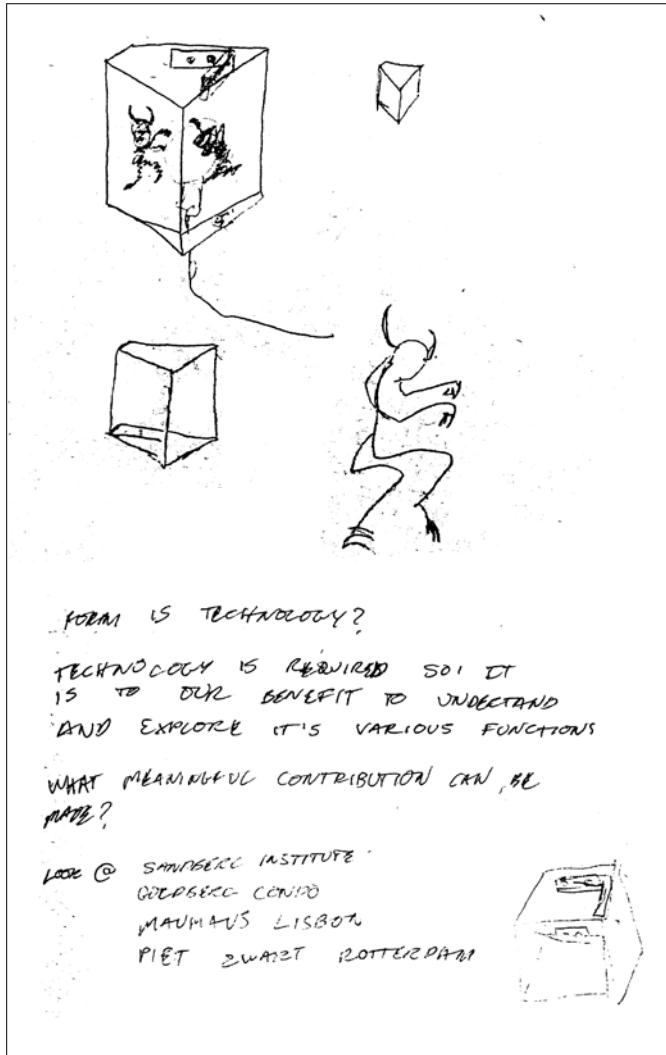 FORM IS TECHNOLOGY?
TECHNOLOGY IS REQUIRED SO! IT
IS TO OUR BENEFIT TO UNDECTAND
AND EXPLORE IT'S VARIOUS FUNCTIONS
WHAT MEANINGFUL CONTRIBUTION CAN BE
MADE?
LOOK @ SANDBERG INSTITUTE
GOLDBERG CONDO
MAUMAUS LISBON
PIET ZWART ROTTERDAM